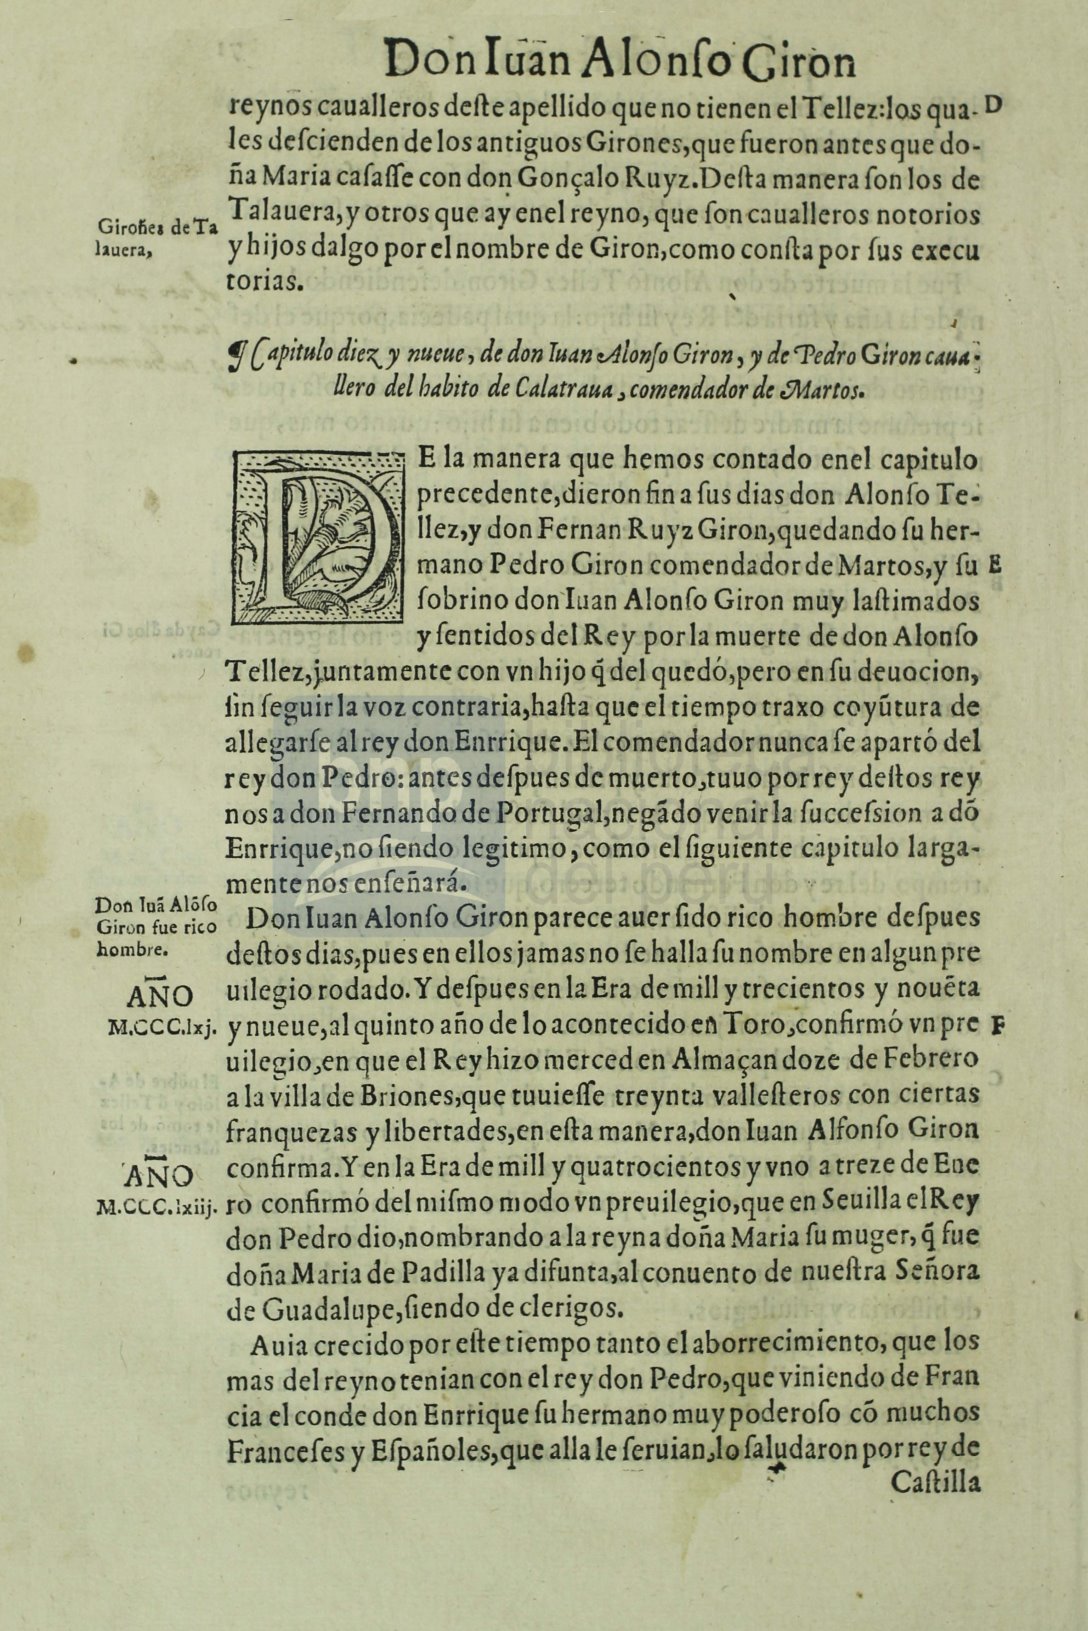 Don Iuan Alonſo Giron
reynos caualleros deſte apellido que no tienen el Tellez: los qua- D
les deſcienden de los antiguos Girones, que fueron antes que do-
ña Maria caſaſſe con don Gonçalo Ruyz. Deſta manera ſon los de
Girones de Ta
lauera,
Talauera, y otros que ay enel reyno, que ſon caualleros notorios
y hijos dalgo por el nombre de Giron, como conſta por ſus execu
torias.
¶ Capitulo diez y nueue, de don Iuan Alonſo Giron, y de Pedro Giron caua-
llero del habito de Calatraua, comendador de Martos.
DE la manera que hemos contado enel capitulo
precedente, dieron fin a ſus dias don Alonſo Te-
llez, y don Fernan Ruyz Giron, quedando ſu her-
mano Pedro Giron comendador de Martos, y ſu E
ſobrino don Iuan Alonſo Giron muy laſtimados
y ſentidos del Rey por la muerte de don Alonſo
Tellez, juntamente con vn hijo q̃ del quedó, pero en ſu deuocion,
ſin ſeguir la voz contraria, haſta que el tiempo traxo coyũtura de
allegarſe al rey don Enrrique. El comendador nunca ſe apartó del
rey don Pedro: antes deſpues de muerto, tuuo por rey deſtos rey
nos a don Fernando de Portugal, negãdo venir la ſucceſsion a dõ
Enrrique, no ſiendo legitimo, como el ſiguiente capitulo larga-
mente nos enſeñará.
Don Iuã Alõſo
Giron fue rico
hombre.
Don Iuan Alonſo Giron parece auer ſido rico hombre deſpues
deſtos dias, pues en ellos jamas no ſe halla ſu nombre en algun pre
AÑO
M.CCC.lxj.
uilegio rodado. Y deſpues en la Era de mill y trecientos y nouẽta
y nueue, al quinto año de lo acontecido en Toro, confirmó vn pre F
uilegio, en que el Rey hizo merced en Almaçan doze de Febrero
a la villa de Briones, que tuuieſſe treynta valleſteros con ciertas
franquezas y libertades, en eſta manera, don Iuan Alfonſo Giron
AÑO
M.CCC.lxiij.
confirma. Y en la Era de mill y quatrocientos y vno a treze de Ene
ro confirmó del miſmo modo vn preuilegio, que en Seuilla el Rey
don Pedro dio, nombrando a la reyna doña Maria ſu muger, q̃ fue
doña Maria de Padilla ya difunta, al conuento de nueſtra Señora
de Guadalupe, ſiendo de clerigos.
Auia crecido por eſte tiempo tanto el aborrecimiento, que los
mas del reyno tenian con el rey don Pedro, que viniendo de Fran
cia el conde don Enrrique ſu hermano muy poderoſo cõ muchos
Franceſes y Eſpañoles, que alla le ſeruian, lo ſaludaron por rey de
Caſtilla